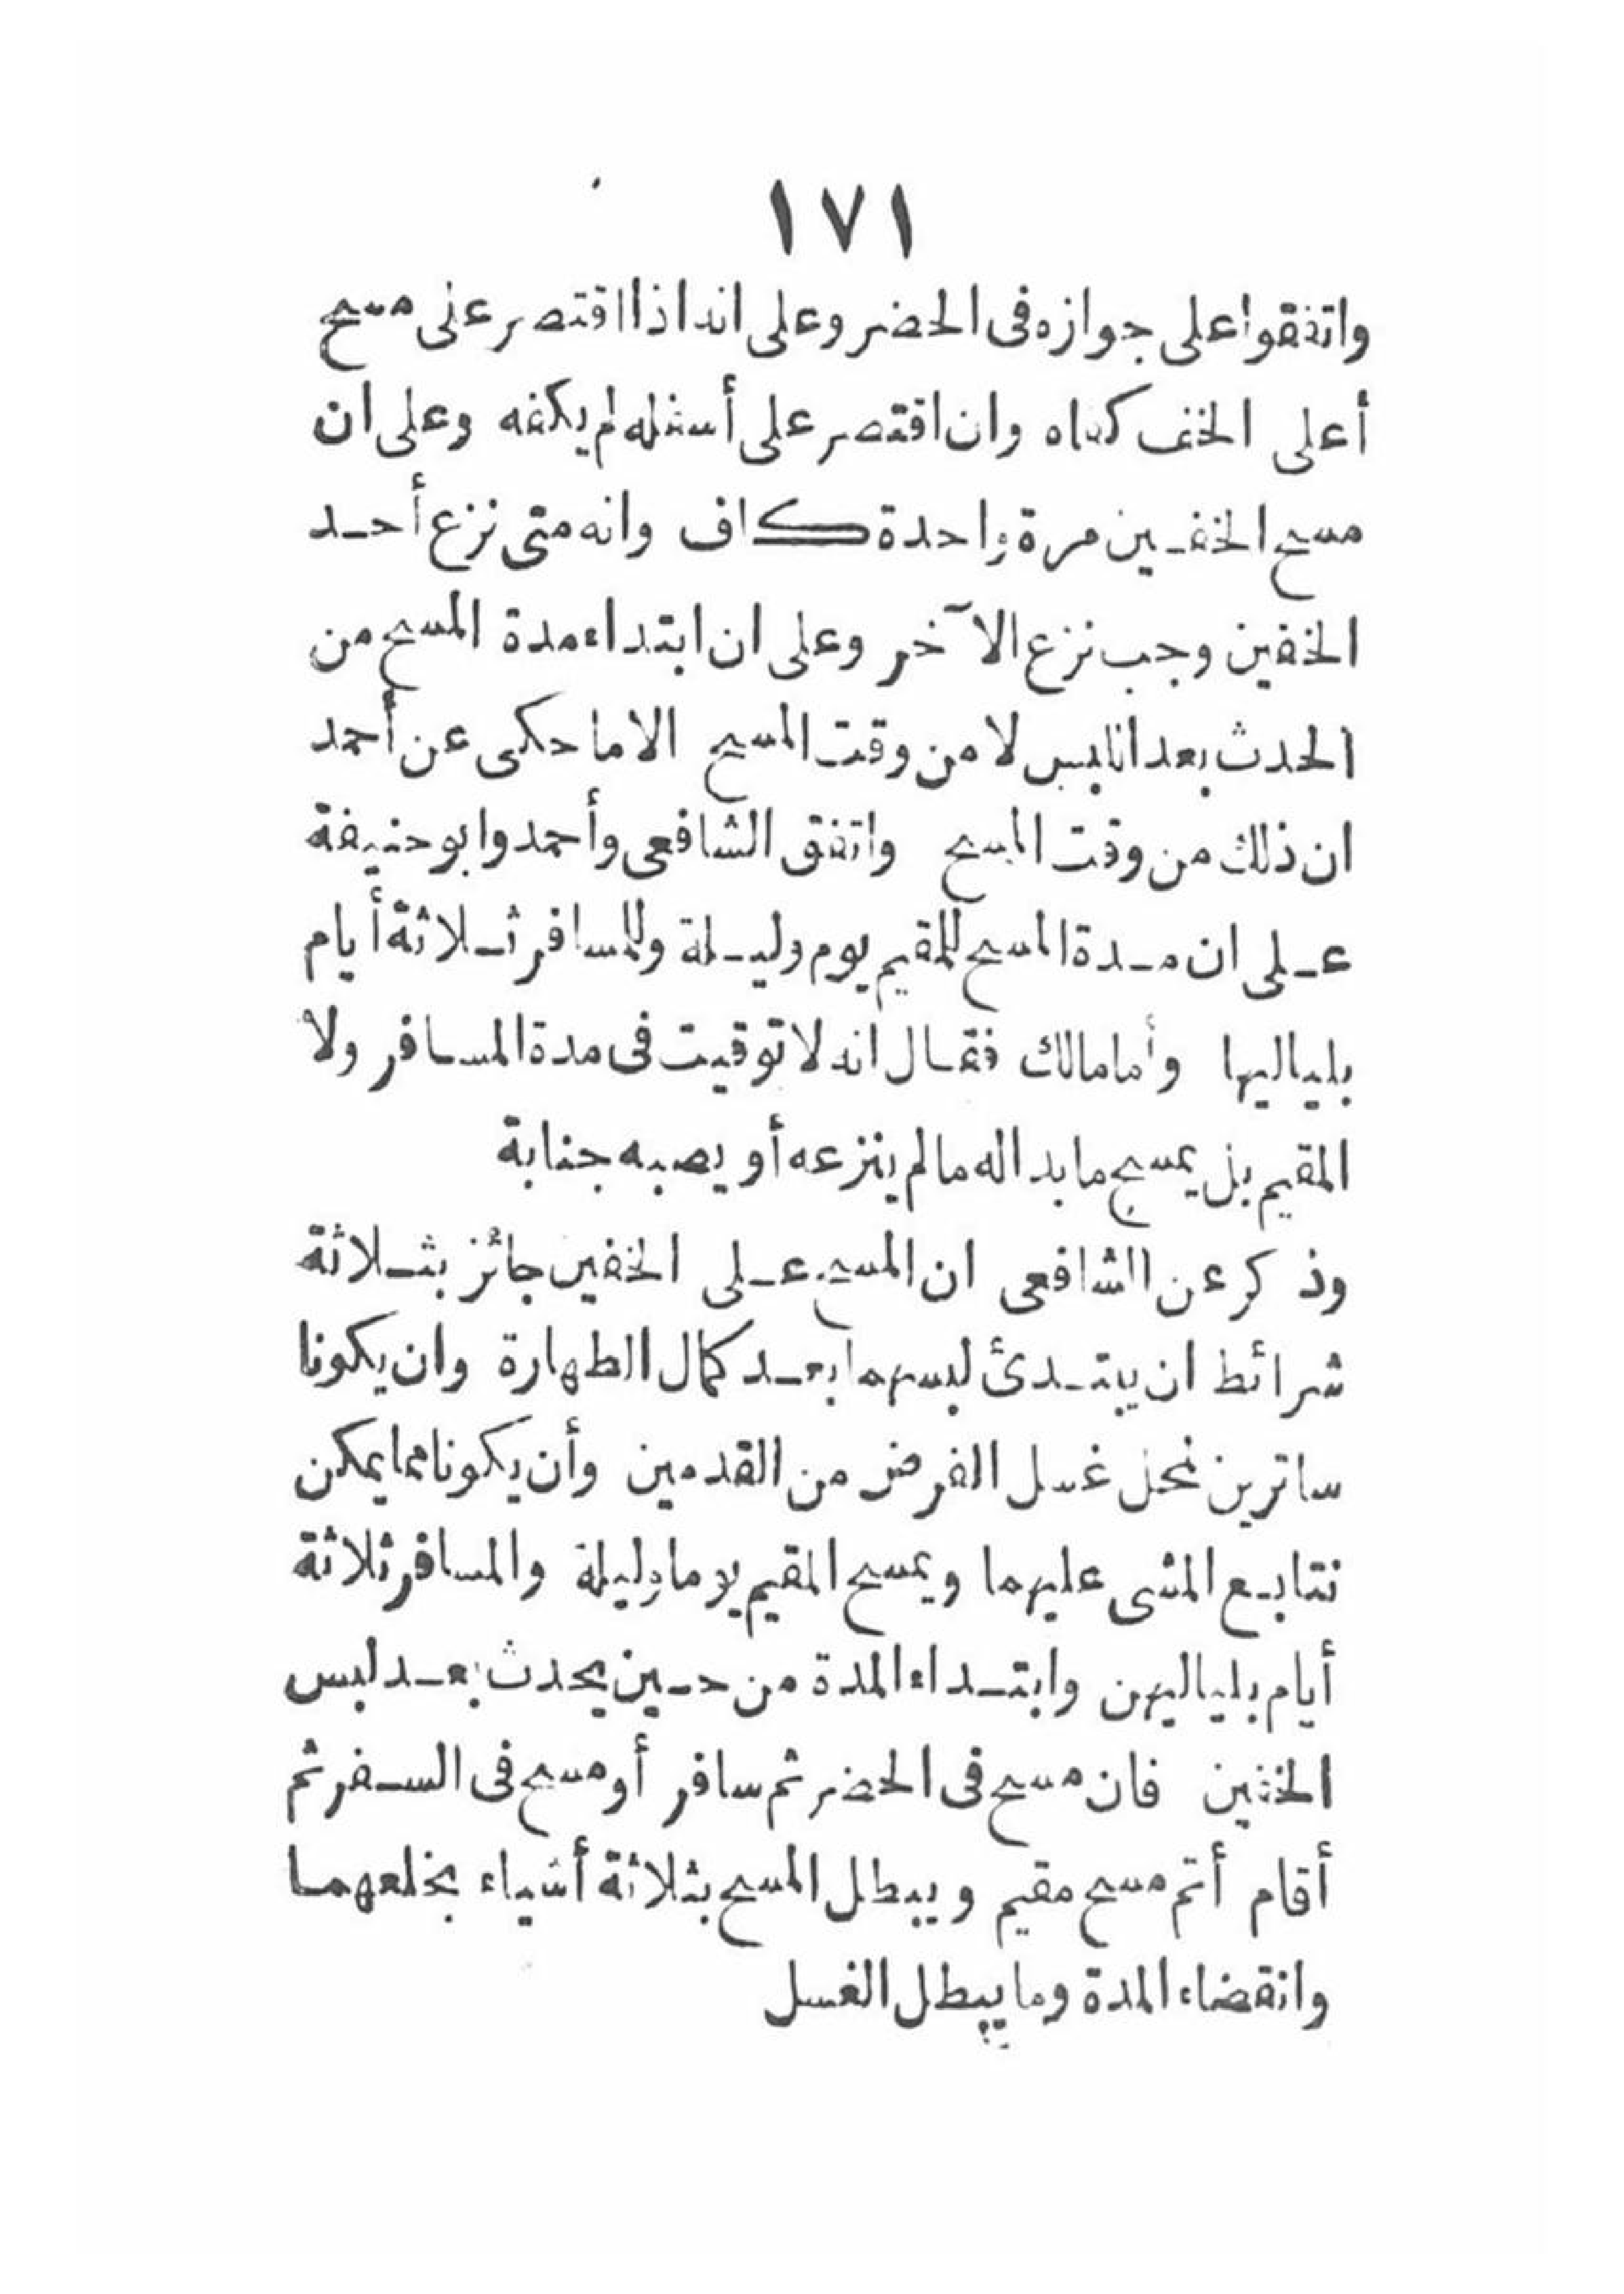 ١٧١
واتفقوا على جوازه فى الحضر وعلى انه اذا اقتصر على مسح
أعلى الخف كفاه وان اقتصر على أسفله لم يكفه وعلى ان
مسح الخفين مرة واحدة كاف وانه متى نزع أحد
الخفين وجب نزع الآخر وعلى ان ابتداء مدة المسح من
الحدث بعد اللبس لا من وقت المسح الا ما حكى عن أحمد
ان ذلك من وقت المسح واتفق الشافعى وأحمد وابو حنيفة
على ان مدة المسح للمقيم يوم وليلة وللمسافر ثلاثة أيام
بلياليها وأما مالك فقال انه لا توقيت فى مدة المسافر ولا
المقيم بل يمسح ما بدا له ما لم ينزعه أو يصبه جنابة
وذكر عن الشافعى ان المسح على الخفين جائز بثلاثة
شرائط ان يبتدئ لبسهما بعد كمال الطهارة وان يكونا
ساترين لمحل غسل الفرض من القدمين وأن يكونا مما يمكن
تتابع المشى عليهما ويمسح المقيم يوما وليلة والمسافر ثلاثة
أيام بلياليهن وابتداء المدة من حين يحدث بعد لبس
الخفين فان مسح فى الحضر ثم سافر أو مسح فى السفر ثم
أقام أتم مسح مقيم ويبطل المسح بثلاثة أشياء بخلعهما
وانقضاء المدة وما يبطل الغسل